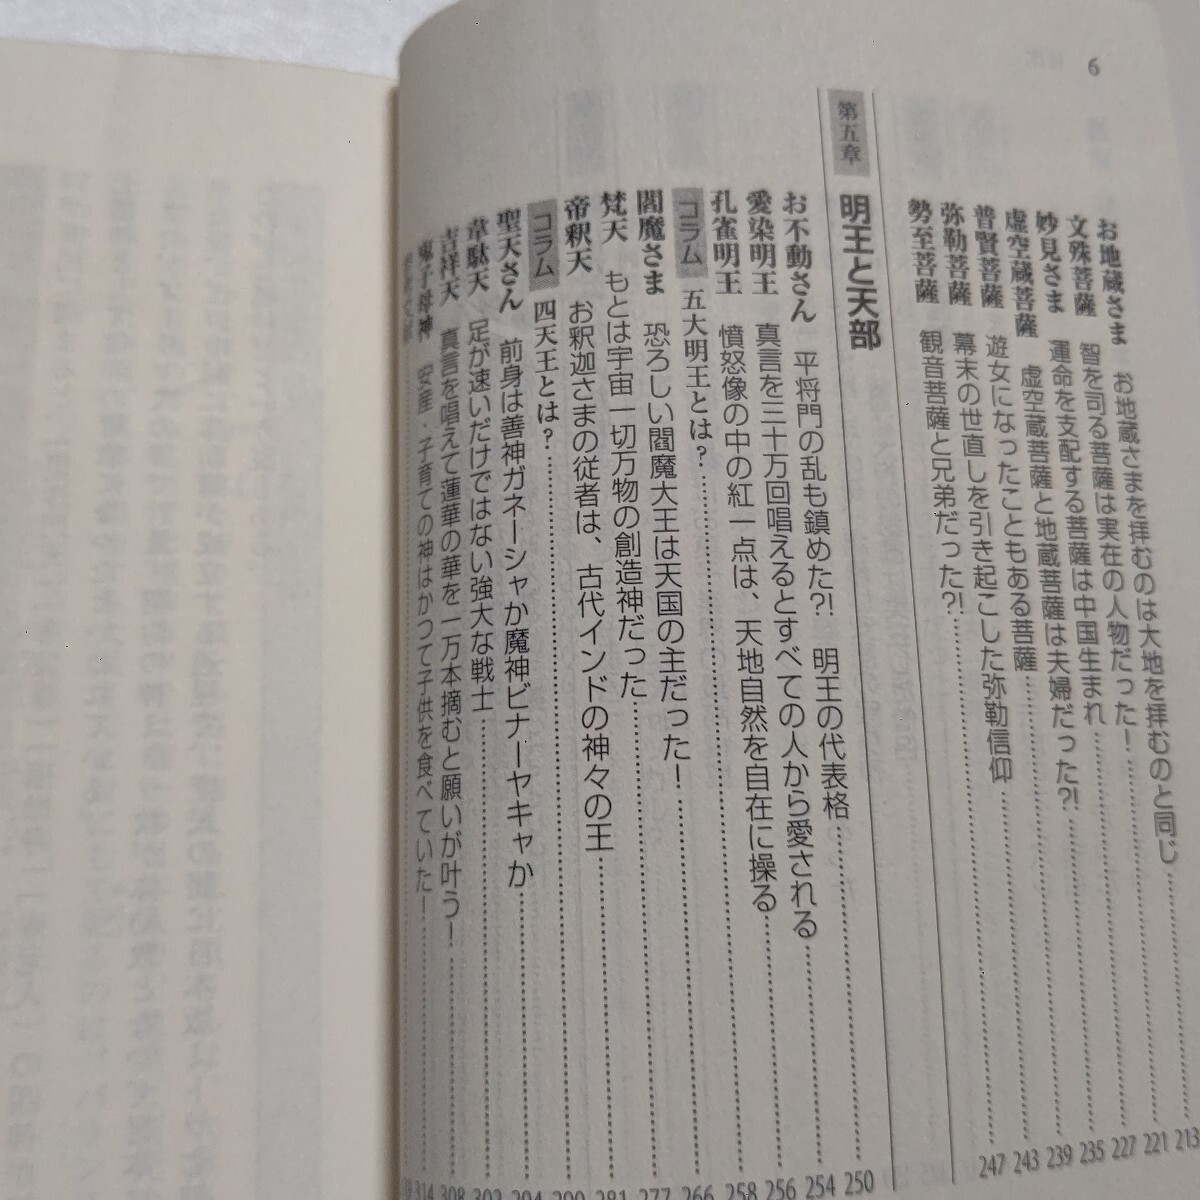 6
お地蔵さま　お地蔵さまを拝むのは大地を拝むのと同じ 213
文殊菩薩　智を司る菩薩は実在の人物だった！ 221
妙見さま　運命を支配する菩薩は中国生まれ 227
虚空蔵菩薩　虚空蔵菩薩と地蔵菩薩は夫婦だった?! 235
普賢菩薩　遊女になったこともある菩薩 239
弥勒菩薩　幕末の世直しを引き起こした弥勒信仰 243
勢至菩薩　観音菩薩と兄弟だった?! 247
第五章　明王と天部
お不動さん　平将門の乱も鎮めた?!　明王の代表格 250
愛染明王　真言を三十万回唱えるとすべての人から愛される 254
孔雀明王　憤怒像の中の紅一点は、天地自然を自在に操る 256
コラム　五大明王とは？ 258
閻魔さま　恐ろしい閻魔大王は天国の主だった！ 266
梵天　もとは宇宙一切万物の創造神だった 277
帝釈天　お釈迦さまの従者は、古代インドの神々の王 281
コラム　四天王とは？
聖天さん　前身は善神ガネーシャか魔神ビナーヤキャか
韋駄天　足が速いだけではない強大な戦士
吉祥天　真言を唱えて蓮華の華を一万本摘むと願いが叶う！ 308
鬼子母神　安産・子育ての神はかつて子供を食べていた！ 314